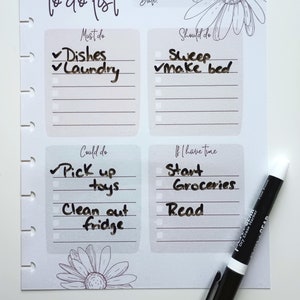 to do list
Date:
Must do
✓Dishes
✓Laundry
Should do
Sweep
✓Make bed
Could do
✓Pick up
toys
Clean out
fridge
If I have time
Start
Groceries
Read